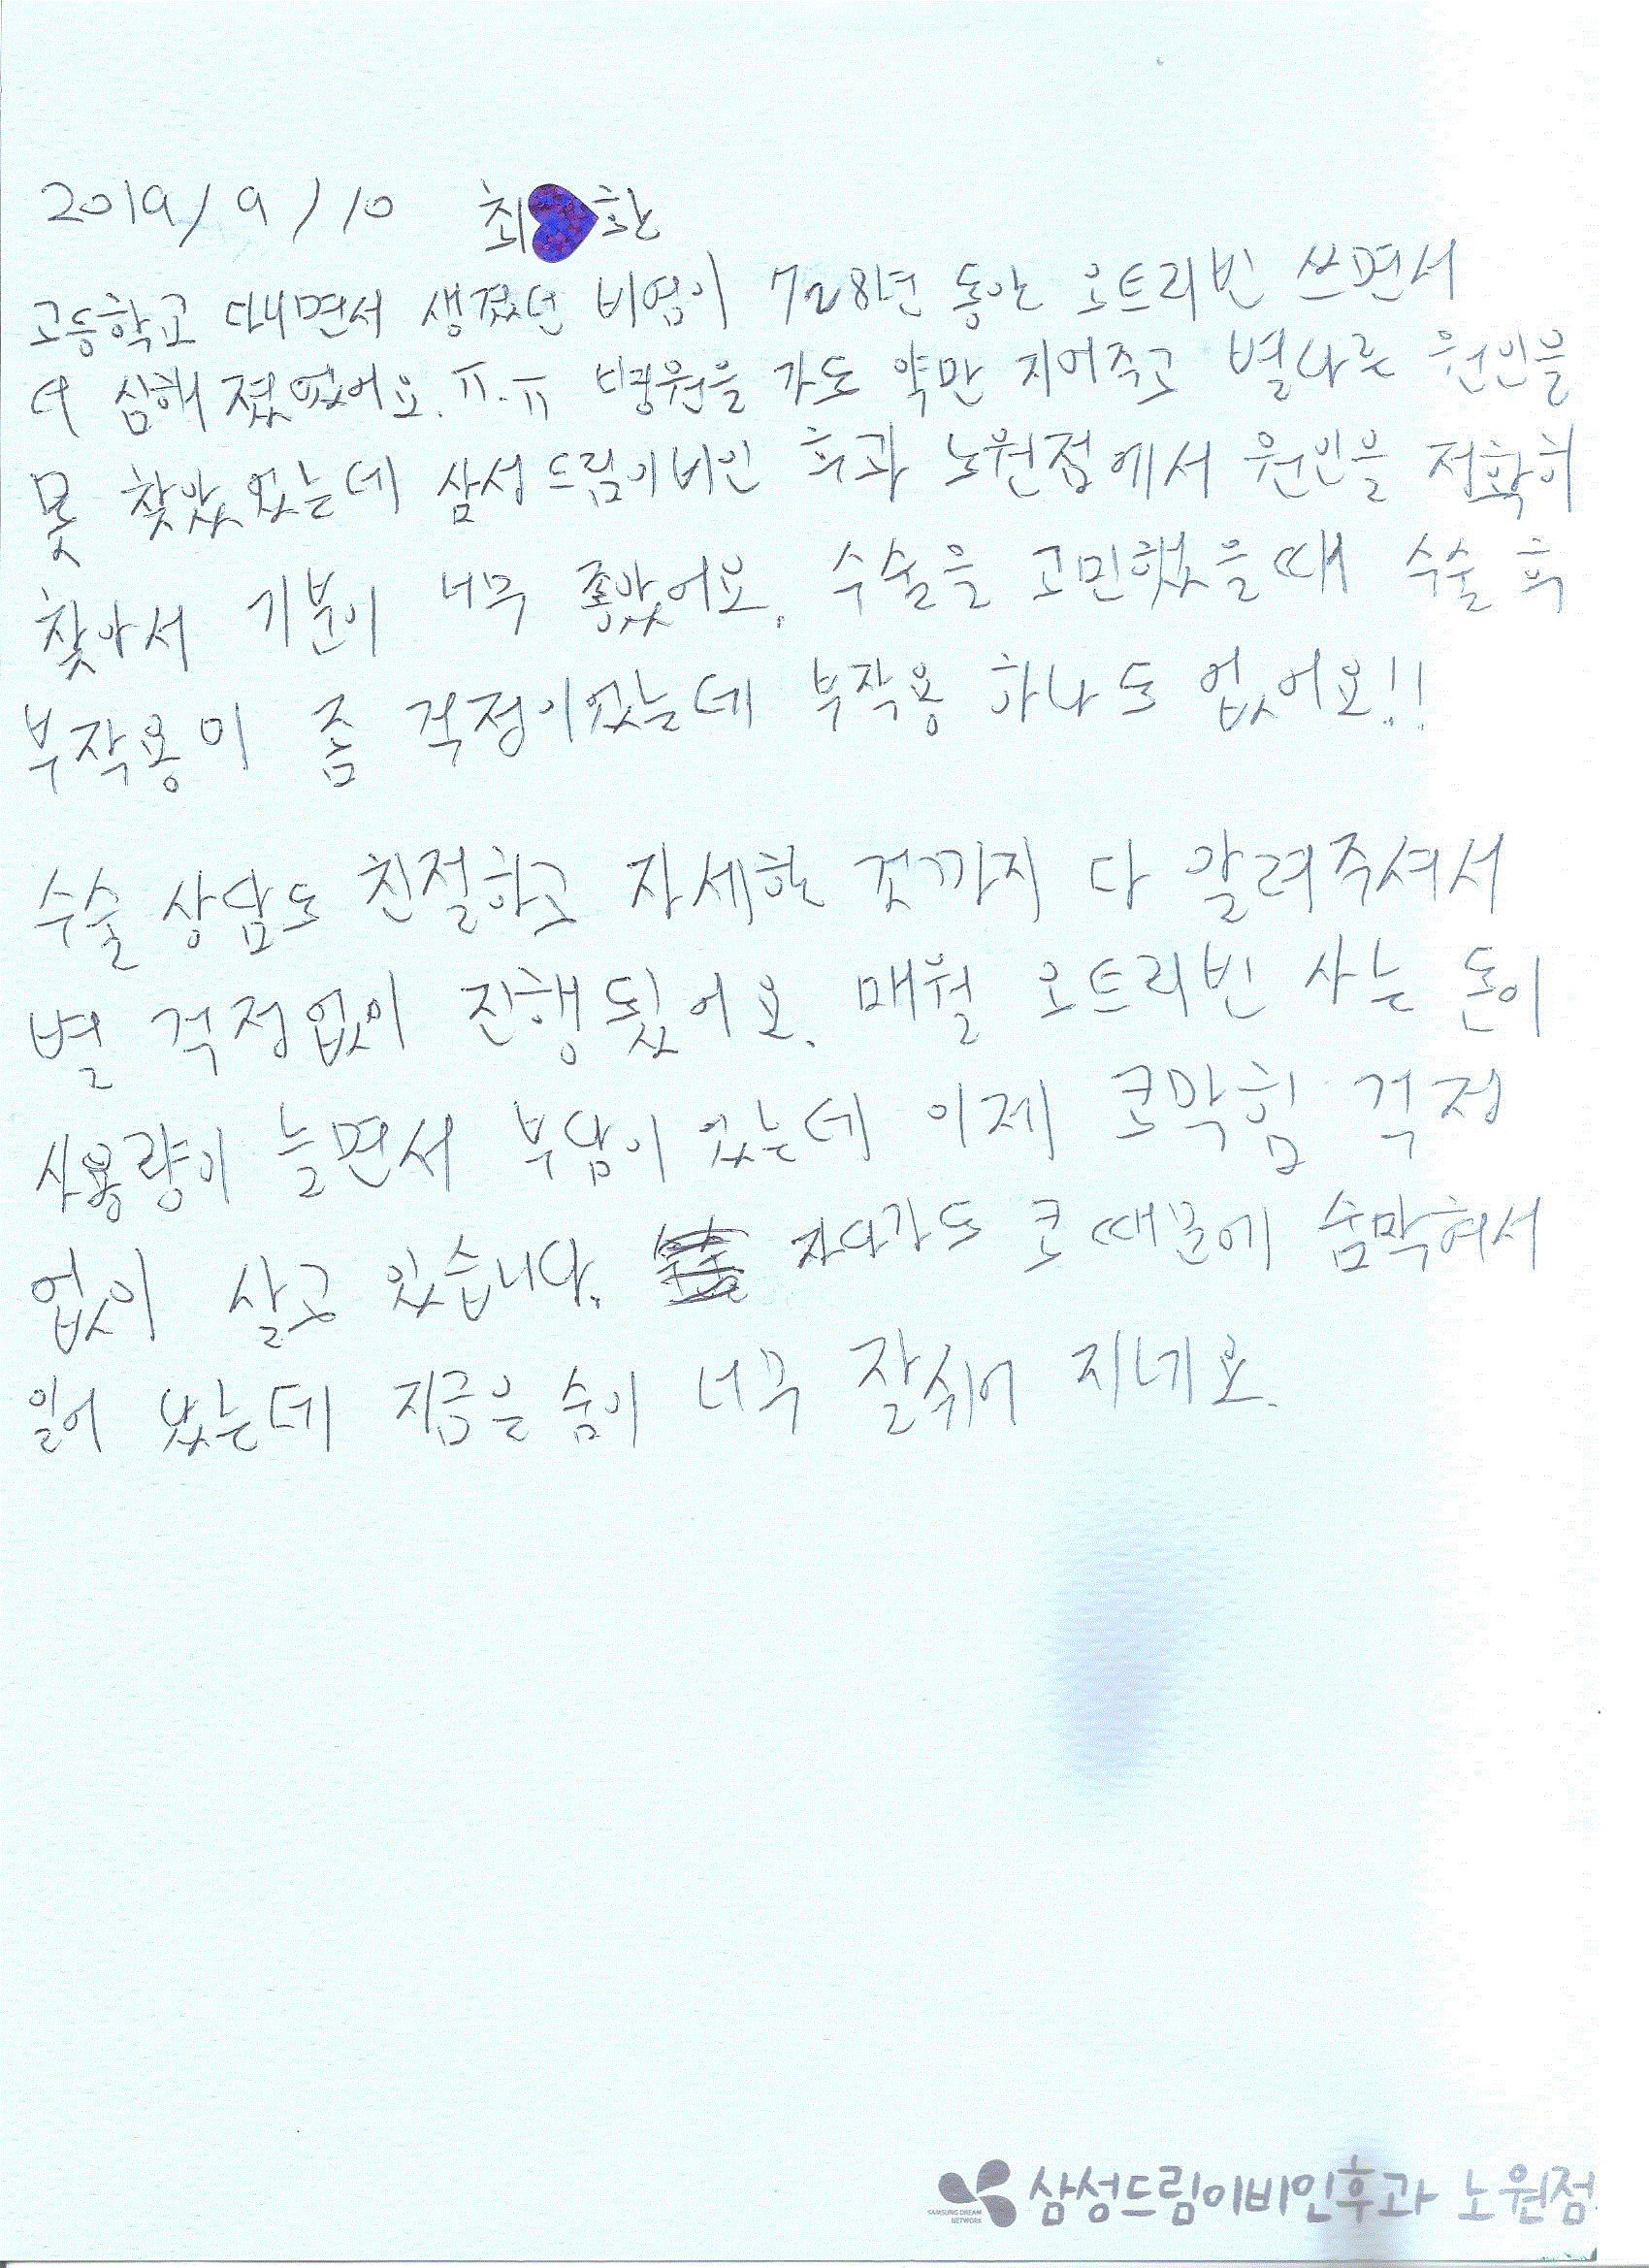 2019/9/10 최 환
고등학교 다니면서 생겼던 비염이 7~8년 동안 오트리빈 쓰면서
더 심해 졌었어요. ㅠ.ㅠ 병원을 가도 약만 지어주고 별다른 원인을
못 찾았었는데 삼성드림이비인 후과 노원점에서 원인을 정확히
찾아서 기분이 너무 좋았어요. 수술을 고민했을때 수술 후
부작용이 좀 걱정이었는데 부작용 하나도 없어요!!
수술 상담도 친절하고 자세한 것까지 다 알려주셔서
별 걱정없이 진행됬어요. 매월 오트리빈 사는 돈이
사용량이 늘면서 부담이 었는데 이제 코막힘 걱정
없이 살고 있습니다. 자다가도 코 때문에 숨막혀서
일어 났는데 지금은 숨이 너무 잘쉬어 지네요.
SAMSUNG DREAM NETWORK
삼성드림이비인후과 노원점